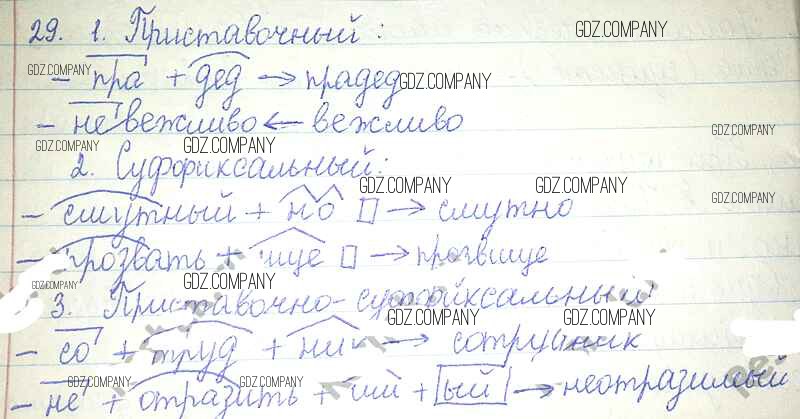 29. 1. Приставочный: GDZ.COMPANY
GDZ.COMPANY
- пра + дед → прадед GDZ.COMPANY
- невежливо ← вежливо GDZ.COMPANY
GDZ.COMPANY GDZ.COMPANY
2. Суффиксальный:
GDZ.COMPANY GDZ.COMPANY GDZ.COMPANY
- смутный + но → смутно
- прозвать + ище → прозвище
GDZ.COMPANY GDZ.COMPANY
3. Приставочно-суффиксальный
GDZ.COMPANY GDZ.COMPANY GDZ.COMPANY
- со + труд + ник → сотрудник
GDZ.COMPANY GDZ.COMPANY GDZ.COMPANY
- не + отразить + им + ый → неотразимый